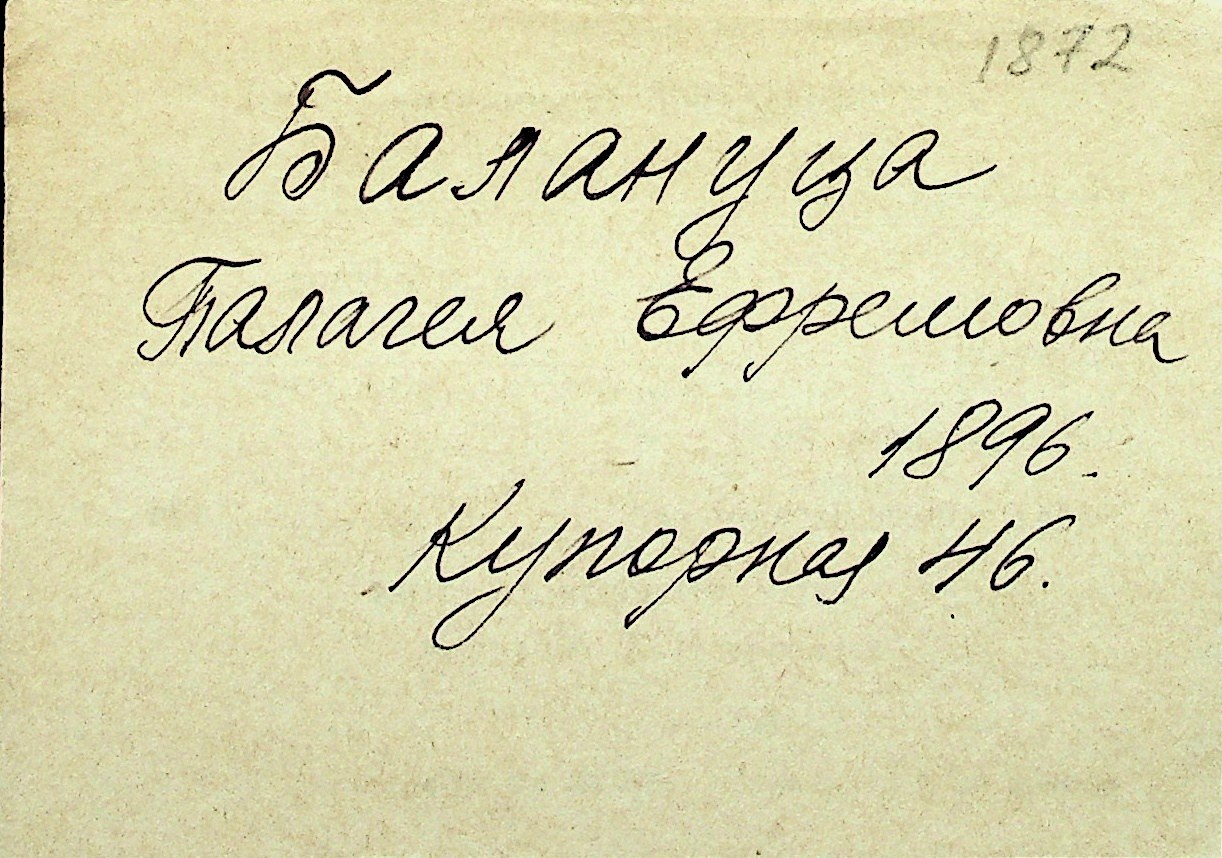 1872
Балануца
Палагея Ефремовна
1896.
Купорная 46.